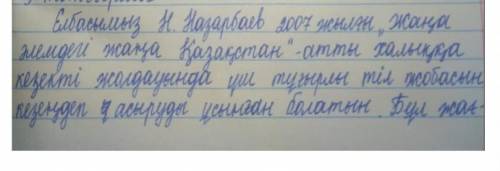 Елбасымыз Н. Назарбаев 2007 жылғы „Жаңа
әлемдегі жаңа Қазақстан"-атты халыққа
кезекті жолдауында үш тұғырлы тіл жобасын
кезеңдеп асыруды ұсынған болатын. Бұл жаң-